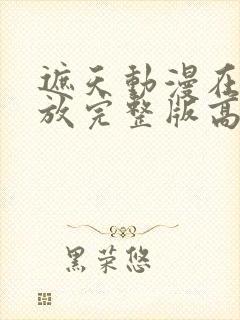 遮天動漫在
放完整版高
黑荣悠